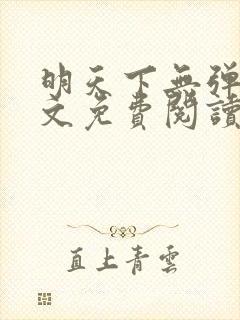 明天下無弹
文免費閱讀
直上青雲